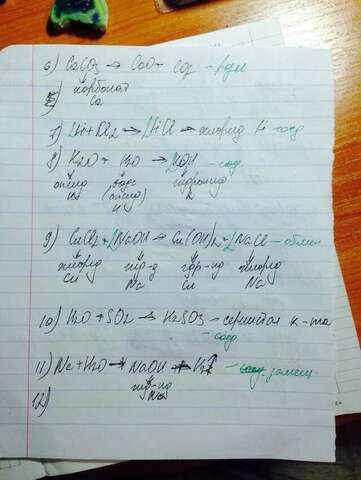 6) CaCO3 → CaO + CO2 - разл
карбонат
Ca
7) 2Li + Cl2 → 2LiCl → хлорид Li - соед
8) K2O + H2O → 2KOH - соед.
оксид вода гидроксид
(оксид
H)
9) CuCl2 + 2NaOH → Cu(OH)2 + 2NaCl - обмен
хлорид гидр-д гидр-ид хлорид
Cu Na Cu Na
10) H2O + SO2 → H2SO3 - сернистая к-та
соед
11) Na + H2O → NaOH + H2↑ - замещ.
гидр-ид
Na
12)